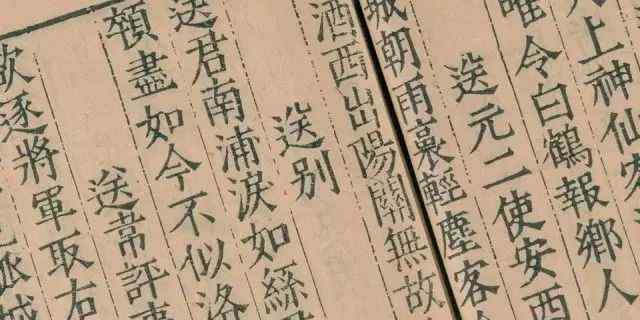 天上神仙客
唯令白鶴報鄉人
送元二使安西
城朝雨裛輕塵客
酒西出陽關無故
送别
送君南浦淚如絲
顇盡如今不似洛
送韋評事
欲逐將軍取右
城